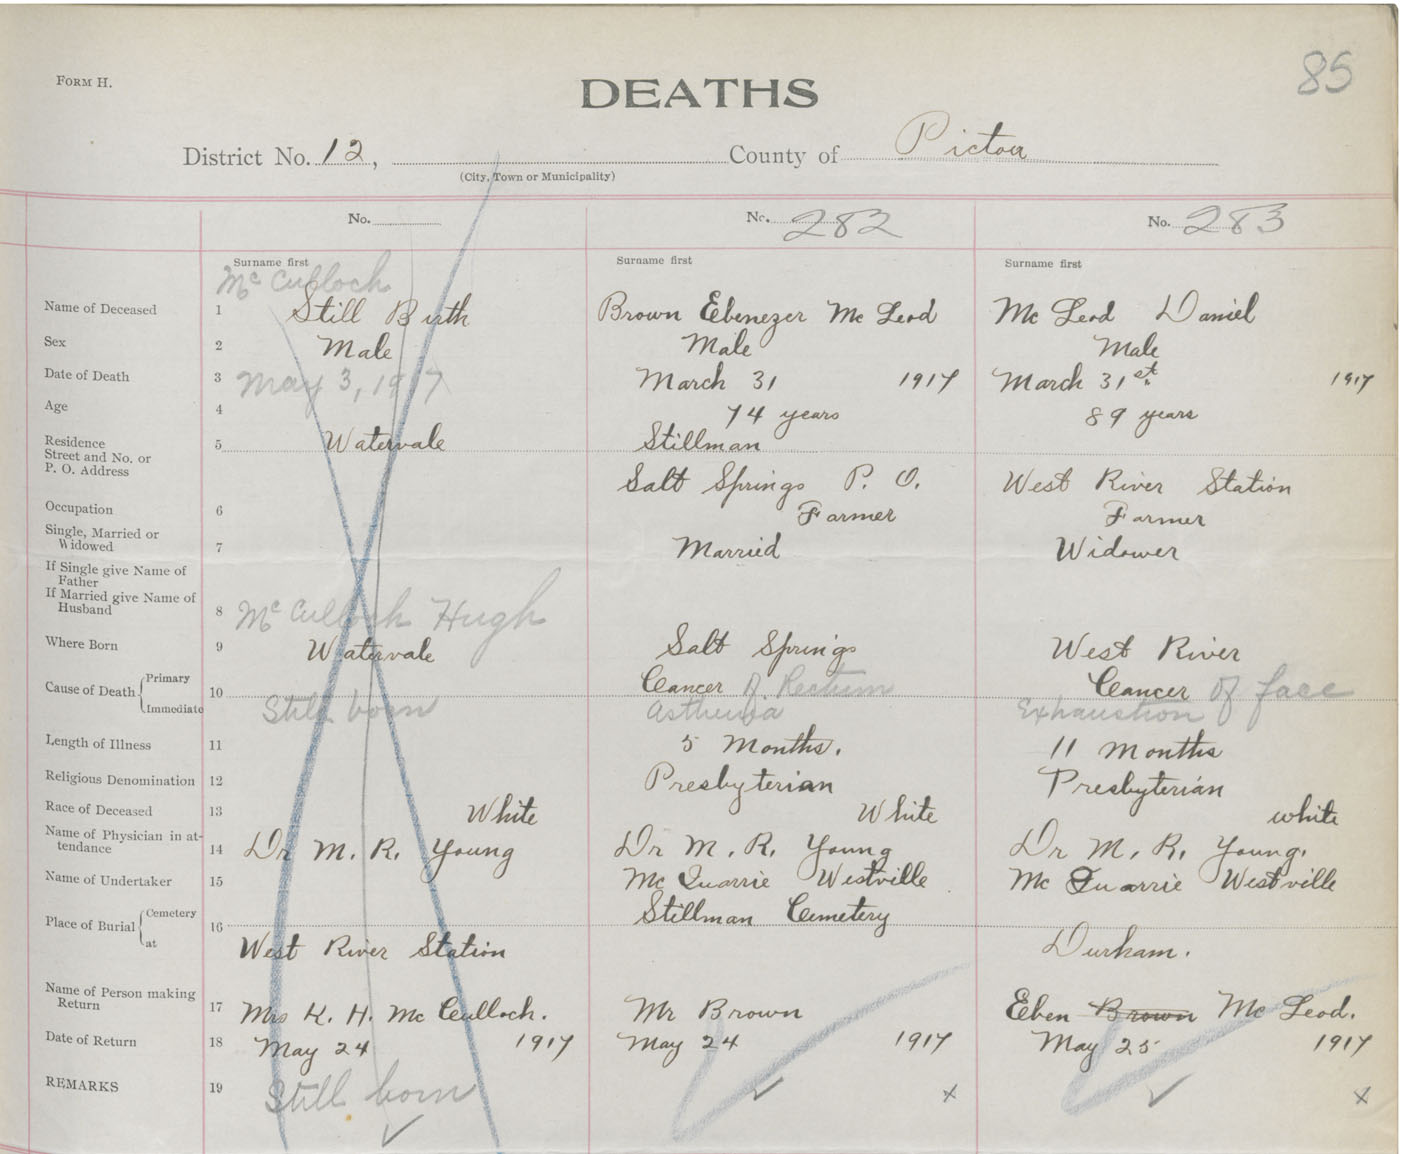 85
FORM H.
DEATHS
District No. 12, County of Pictou
(City, Town or Municipality)
No. No. 282 No. 283
Surname first Surname first Surname first
Mc Culloch
Name of Deceased 1 Still Birth Brown Ebenezer Mc Leod Mc Leod Daniel
Sex 2 Male Male Male
Date of Death 3 May 3, 1917 March 31 1917 March 31st. 1917
Age 4 74 years 89 years
Residence Street and No. or P. O. Address 5 Watervale Stillman
Salt Springs P. O. West River Station
Occupation 6 Farmer Farmer
Single, Married or Widowed 7 Married Widower
If Single give Name of Father
If Married give Name of Husband 8 Mc Culloch Hugh
Where Born 9 Watervale Salt Springs West River
Cause of Death Primary 10 Cancer of Rectum Cancer of face
Immediate Still born Asthenia Exhaustion
Length of Illness 11 5 Months. 11 months
Religious Denomination 12 Presbyterian Presbyterian
Race of Deceased 13 White White white
Name of Physician in attendance 14 Dr M. R. Young Dr M. R. Young Dr M. R. Young.
Name of Undertaker 15 Mc Quarrie Westville Mc Quarrie Westville
Place of Burial Cemetery 16 Stillman Cemetery
at West River Station Durham.
Name of Person making Return 17 Mrs K. H. Mc Culloch. Mr Brown Eben Brown Mc Leod.
Date of Return 18 May 24 1917 May 24 1917 May 25 1917
REMARKS 19 Still born x x